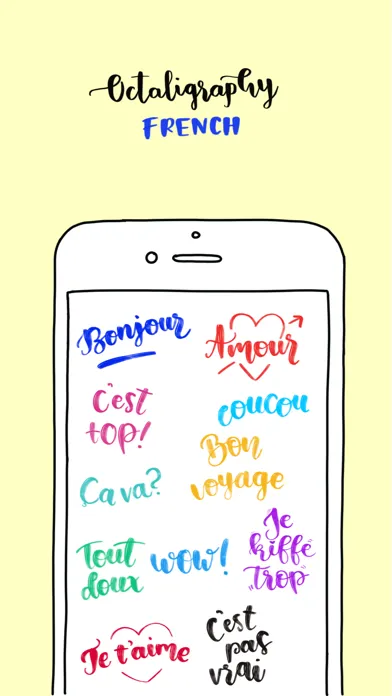 Octaligraphy
FRENCH
Bonjour
Amour
C'est
top!
coucou
Bon
voyage
Ça va?
Je
kiffe
trop
Tout
doux
wow!
Je t'aime
C'est
pas
vrai